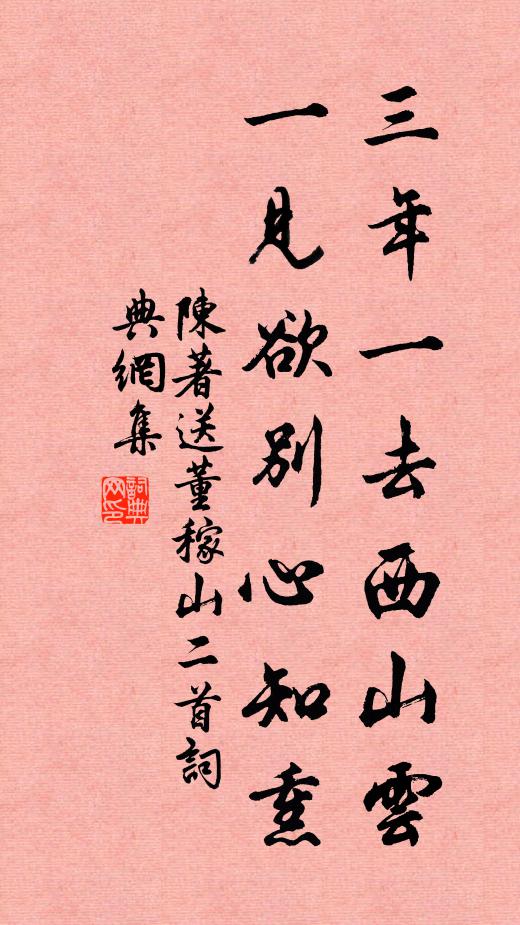 三年一去西山雲
一見欲別心知熏
陳著送董稼山二首詞
典網集
詞典网印